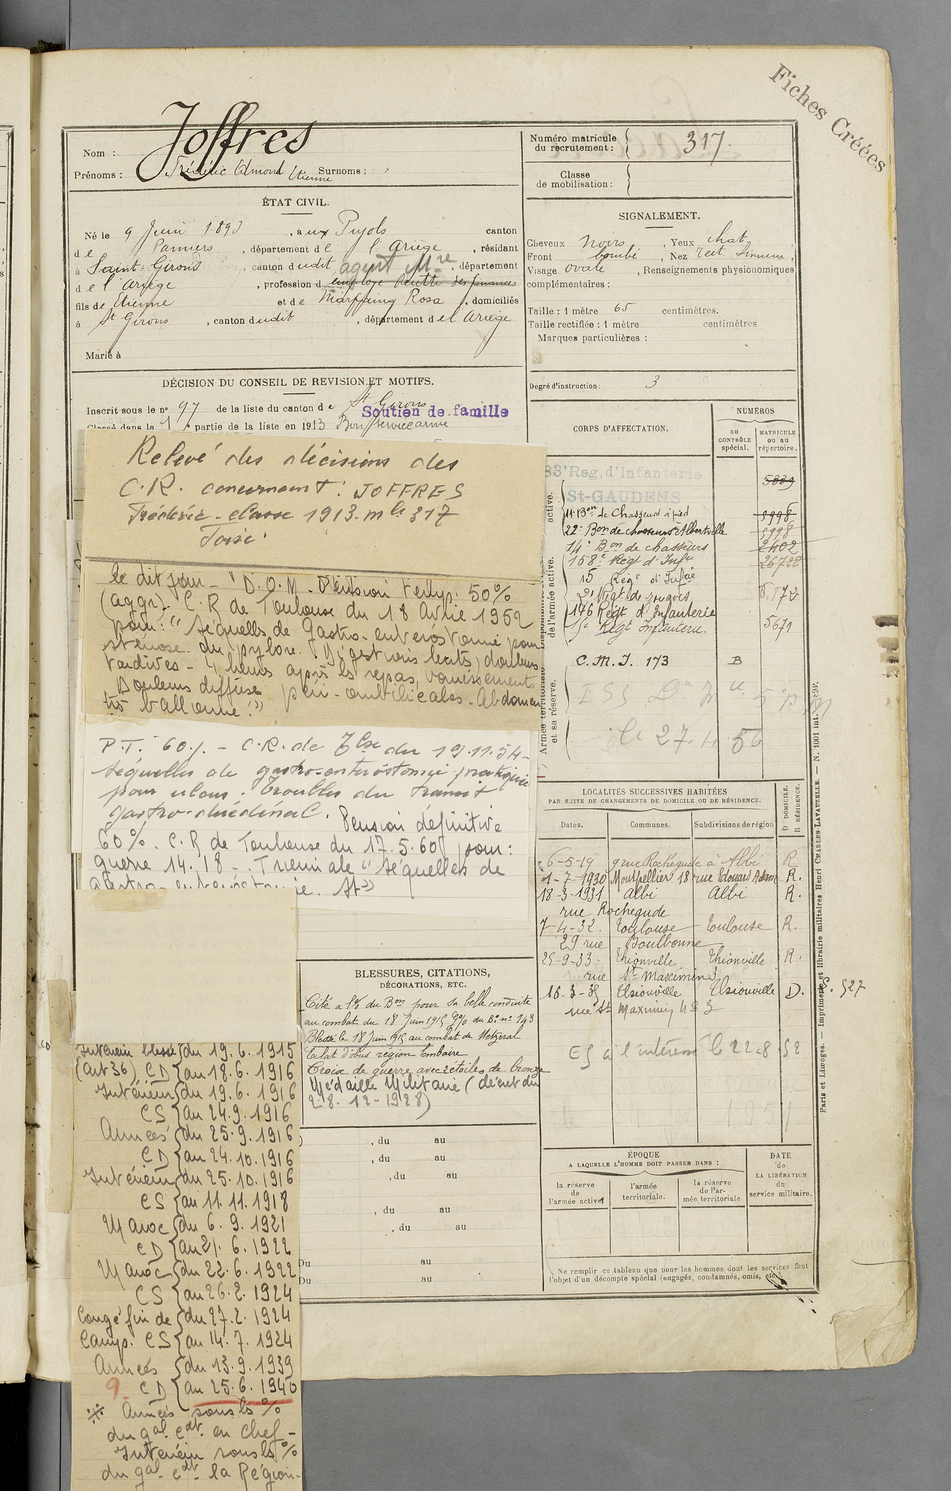 Fiches Créées
Nom : Joffres
Prénoms : Frédéric Edmond Etienne Surnoms :
ÉTAT CIVIL.
Né le 9 Juin 1893, aux Pujols canton
de Pamiers, département de l'Ariège, résidant
à Saint-Girons, canton dudit, département
agent Mre
de l'Ariège, profession d employé Recette des finances
fils de Etienne et de Marfaing Rosa, domiciliés
à St Girons, canton dudit, département de l'Ariège
Marié à
DÉCISION DU CONSEIL DE REVISION ET MOTIFS.
Inscrit sous le n° 97 de la liste du canton de St Girons
Soutien de famille
Classé dans la 1 partie de la liste en 1913 Bon service armé
Relevé des décisions des
C.R. concernant : JOFFRES
Frédéric - classe 1913. mle 317
Foix
le dit jour - D.O.M. Pension temp. 50%
(aggr). C.R de Toulouse du 18 Avril 1952
pour : "Séquelles de Gastro-entérostomie pour
sténose du pylore. Digestions lentes, douleurs
tardives - 4 heures après les repas, vomissements
Douleurs diffuses péri-ombilicales. Abdomen
très ballonné."
P.T. 60% - C.R. de Tlse du 19.11.54 -
séquelles de gastro-entérostomie pratiquée
pour ulcus. Troubles du transit
gastro-duodénal. Pension définitive
60%. C.R de Toulouse du 17.5.60 pour :
guerre 14.18 - "Séquelles de
gastro-entérostomie. St"
Intérieur blessé du 19.6.1915
(art 36) CD au 18.6.1916
Intérieur du 19.6.1916
CS au 24.9.1916
Armées du 25.9.1916
CD au 24.10.1916
Intérieur du 25.10.1916
CS au 11.11.1918
Maroc du 6.9.1921
CD au 21.6.1922
Maroc du 22.6.1922
CS au 26.2.1924
Congé fin de du 27.2.1924
Camp. CS au 14.7.1924
Armées du 13.9.1939
9 CD au 25.6.1940
* Armées sous ls %
du gal cdt en chef -
Intérieur sous ls %
du gal cdt la Région.
BLESSURES, CITATIONS,
DÉCORATIONS, ETC.
Cité à l'o/ du Bon pour sa belle conduite
au combat du 18 Juin 1915 o/ du Bon n° 143
Blessé le 18 Juin 1915 au combat de Metzeral
Eclat d'obus région lombaire
Croix de guerre avec 2 étoiles de bronze
Médaille Militaire (décret du
28-12-1928)
, du au
, du au
, du au
, du au
, du au
Du au
Du au
Numéro matricule
du recrutement : 317.
Classe
de mobilisation :
SIGNALEMENT.
Cheveux noirs, Yeux chat.
Front bombé, Nez rect. sinueux,
Visage ovale, Renseignements physionomiques
complémentaires :
Taille : 1 mètre 65 centimètres.
Taille rectifiée : 1 mètre centimètres
Marques particulières :
Degré d'instruction : 3
CORPS D'AFFECTATION.
NUMÉROS
au CONTRÔLE spécial.
MATRICULE ou au répertoire.
83e Rég. d'Infanterie
St-GAUDENS
11e Bon de Chasseurs à pied 5998
22e Bon de chasseurs Albertville 5998
14e Bon de chasseurs 2402
158e Régt d'Infie 26722
15 Régt d'Infie
2e Régt de zouaves
176 Régt d'Infanterie
Régt Infanterie. 5671
C.M.I. 173 B
le 27 4 56
active.
de l'armée active.
Armée territoriale
et sa réserve.
LOCALITÉS SUCCESSIVES HABITÉES
PAR SUITE DE CHANGEMENTS DE DOMICILE OU DE RÉSIDENCE.
Dates. Communes. Subdivisions de région
D DOMICILE.
R RÉSIDENCE.
6-5-19 9 rue Rochegude à Albi R
1-7-1930 Montpellier 18 rue Edouard Adam R.
18-3-1931 Albi Albi R.
rue Rochegude
7-4-32. Toulouse Toulouse R.
29 rue Boulbonne
25-9-33. Thionville Thionville R.
rue St Maximin 3
16-3-35 Thionville Thionville D. S. 527
rue St Maximin n° 3
ES à l'intérieur le 22.8.52
ÉPOQUE
A LAQUELLE L'HOMME DOIT PASSER DANS :
DATE
de
LA LIBÉRATION
du
service militaire.
la réserve de l'armée active
l'armée territoriale.
la réserve de l'armée territoriale
Ne remplir ce tableau que pour les hommes dont les services font
l'objet d'un décompte spécial (engagés, condamnés, omis, etc.)
Paris et Limoges. — Imprimerie et librairie militaires Henri CHARLES-LAVAUZELLE. — N. 1001 int.